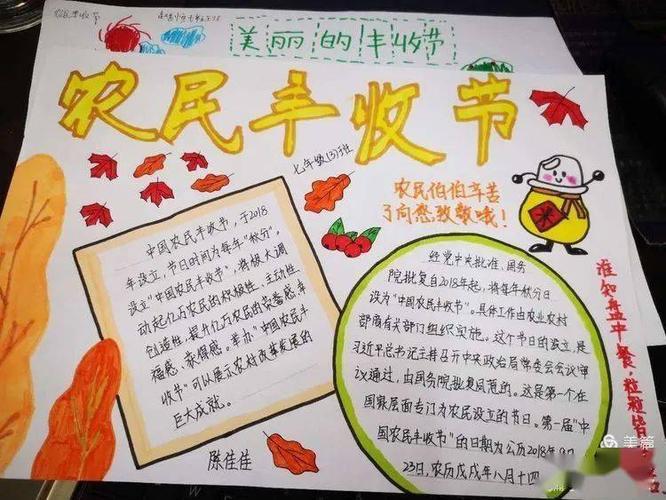 农民丰收节
美丽的丰收节
农民丰收节
七年级(3)班
农民伯伯辛苦
了向您致敬哦!
中国农民丰收节,于2018
年设立,节日时间为每年"秋分"。
设立"中国农民丰收节",将极大调
动起亿万农民的积极性、主动性
创造性,提升亿万农民的荣誉感、幸
福感、获得感。举办"中国农民丰
收节"可以展示农村改革发展的
巨大成就。
陈佳佳
经党中央批准、国务
院批复自2018年起,将每年秋分日
设为"中国农民丰收节"。具体工作由农业农村
部商有关部门组织实施。这个节日的设立,是
习近平总书记主持召开中央政治局常委会会议审
议通过,由国务院批复同意的。这是第一个在
国家层面专门为农民设立的节日。第一届"中
国农民丰收节"的日期为公历2018年9月
23日,农历戊戌年八月十四
谁知盘中餐,粒粒皆
美篇